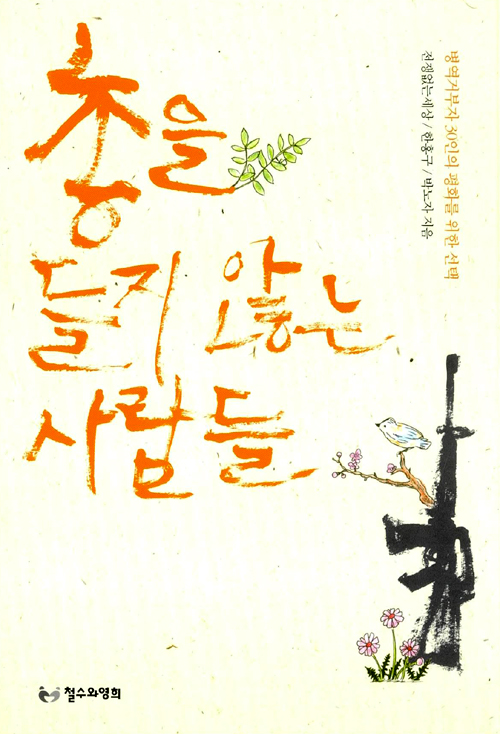 총을
들지 않는
사람들
병역거부자 30인의 평화를 위한 선택
전쟁없는세상 / 한홍구 / 박노자 지음
철수와영희